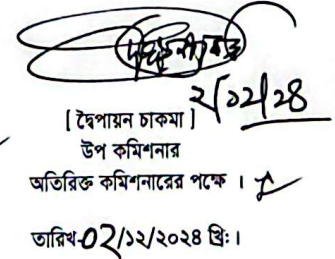 ২/১২/২৪
[ দ্বৈপায়ন চাকমা ]
উপ কমিশনার
অতিরিক্ত কমিশনারের পক্ষে ।
তারিখ-০২/১২/২০২৪ খ্রি: ।